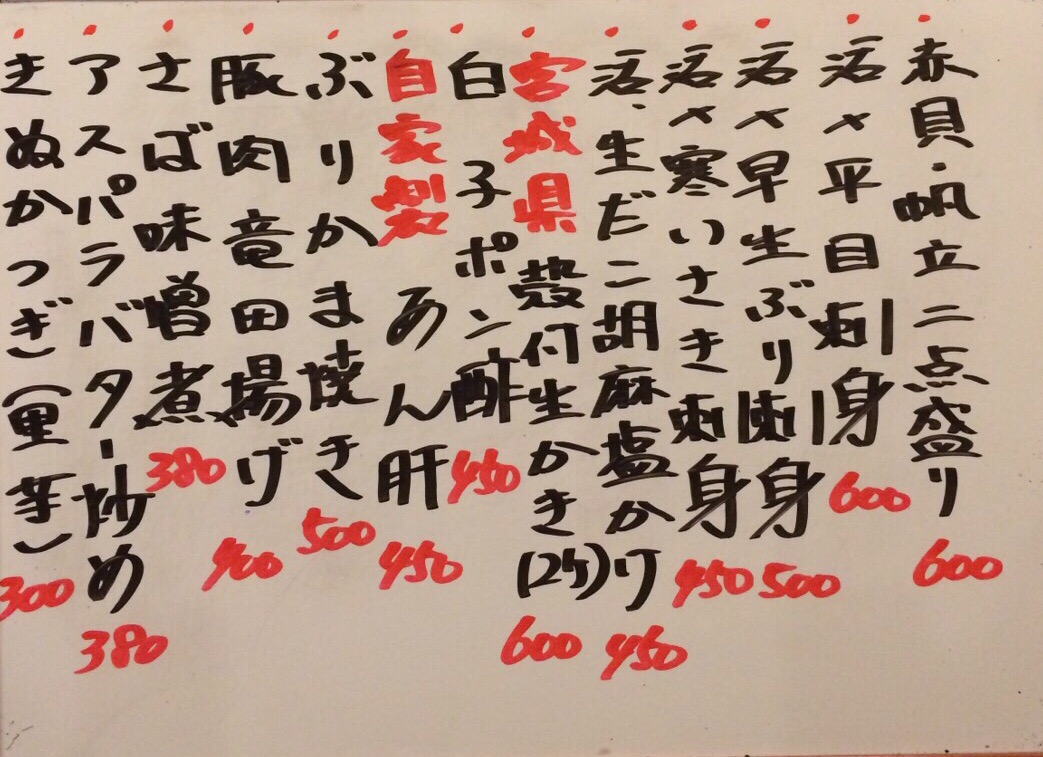 赤貝・帆立二点盛り 600
活〆平目刺身 600
活〆早生ぶり刺身 500
活〆寒いさき刺身 450
活、生だこ胡麻塩かけ 450
宮城県殻付生かき(2ケ) 600
白子ポン酢 450
自家製あん肝 450
ぶりかま焼き 500
豚肉竜田揚げ 400
さば味噌煮 380
アスパラバター炒め 380
きぬかつぎ(里芋) 300